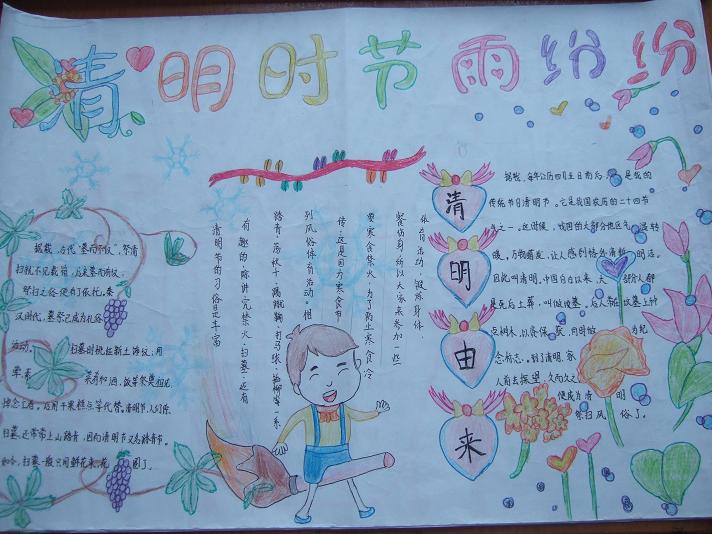 清明时节雨纷纷
清
明
由
来
据载，每年公历四月五日前后，是我的
传统节日清明节。它是我国农历的二十四节
气之一。这时候，我国的大部分地区气温转
暖，万物萌发，让人感到格外清新明洁。
因此叫清明。中国自古以来，大部分人都
是死后土葬，叫做坟墓。后人常在坟墓上种
些树木，以作保
念标志。到了清明，家
人前去探望，久而久之
便成为清明
祭扫风俗了。
清明节的习俗是丰富
有趣的，除讲究禁火、扫墓，还有
踏青、荡秋千、蹴鞠、打马球、插柳等一系
列风俗体育活动。相
传，这是因为寒食节
要寒食禁火，为了防止寒食冷
餐伤身，所以大家来参加一些
体育活动，锻炼身体。
据载，古代“墓而不坟”，祭有
扫就不见载籍，后来墓而有坟，
祭扫之俗便有了依托。秦
汉时代，墓祭已成为礼俗
活动。扫墓时挑些新土培坟，用
茶和酒、饭菜祭奠祖先
悼念亡者。近用干果糕点等代替。清明节，人们除
扫墓，还常常上山踏青，因而清明节又名踏青节。
如今，扫墓一般只用鲜花来花圈了。